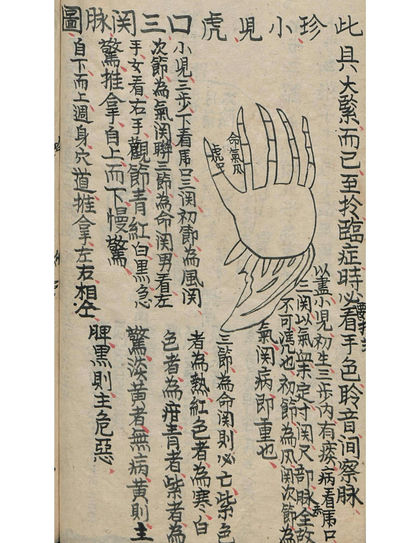 珍小児虎口三関脉圖
此具大緊而已至於臨症時必看手色聆音间察脉
以盖小兒初生三歩内有疾病看虎口
三関以氣血未定寸関尺部脉全故
不可凴也初節為风関次節為
氣関病即重也
三節為命関則必亡紫色
者為熱紅色者為寒白
色者為疳青者紫者為
驚淡黄者無病黄則主
脾黑則主危惡
命氣风
虎口
小児三歩下看虎口三関初節為風関
次節為氣関聨三節為命関男看左
手女看右手觀節青紅白黑急
驚推拿自上而下慢驚
自下而上週身穴道推拿左右相仝